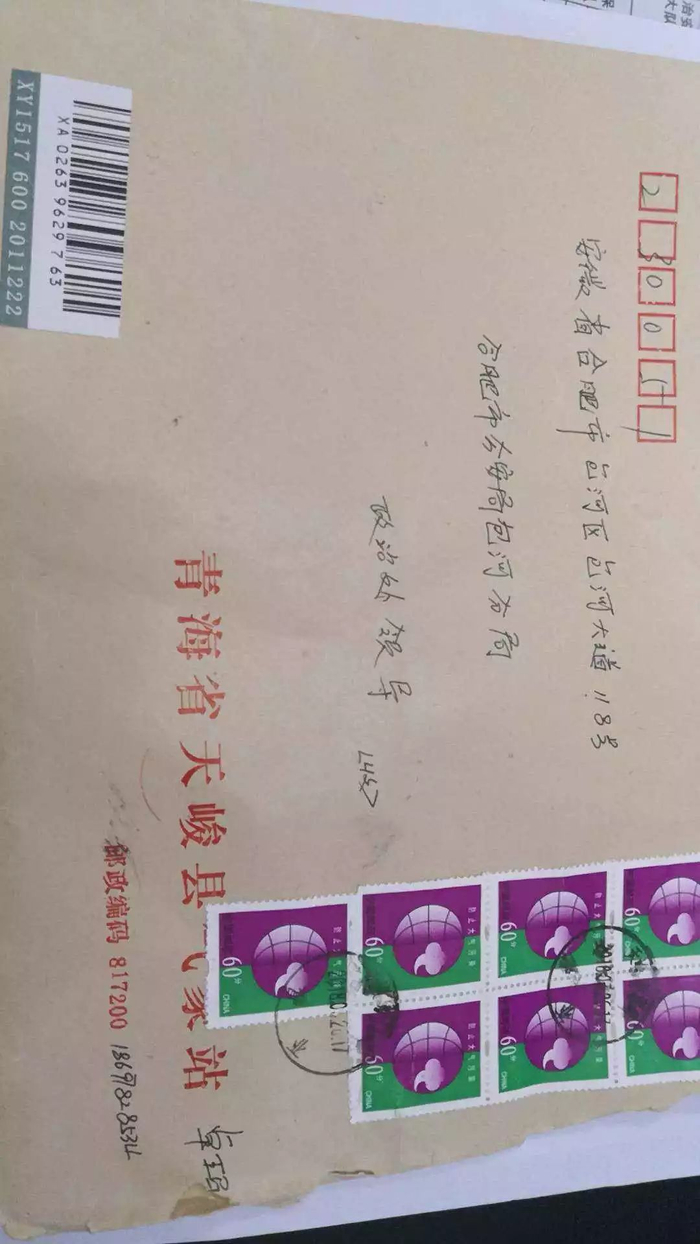 230051
安徽省合肥市包河区包河大道118号
合肥市公安局包河分局
政治处领导
(收)
XA 0263 9629 7 63
XY1517 600 2011222
青海省天峻县气象站
邮政编码 817200
60分
CHINA
60分
CHINA
60分
60分
60分
CHINA
60分
CHINA
60分